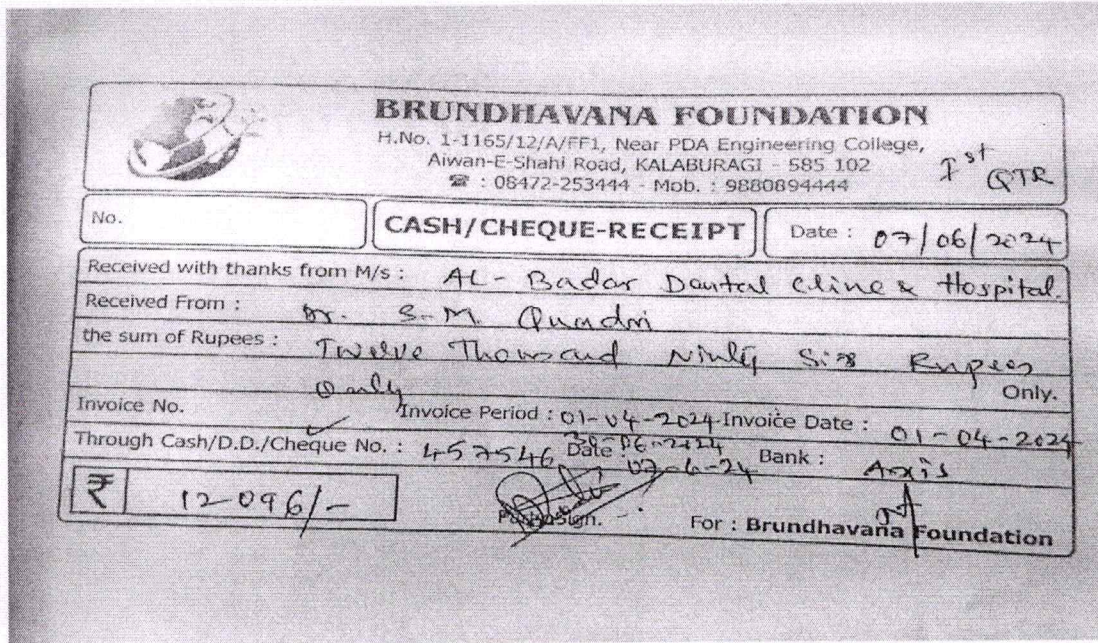 BRUNDHAVANA FOUNDATION
H.No. 1-1165/12/A/FF1, Near PDA Engineering College,
Aiwan-E-Shahi Road, KALABURAGI - 585 102
☎ : 08472-253444 - Mob. : 9880894444
Ist QTR
No.
CASH/CHEQUE-RECEIPT
Date : 07/06/2024
Received with thanks from M/s : AL-Badar Dental Cline & Hospital.
Received From : Dr. S.M. Quadri
the sum of Rupees : Twelve Thousand Ninty Six Rupees
Only Only.
Invoice No. Invoice Period : 01-04-2024 Invoice Date : 01-04-2024
30-06-2024
Through Cash/D.D./Cheque No. : 457546 Date : 07-6-24 Bank : Axis
₹ 12096/-
Sign. For : Brundhavana Foundation